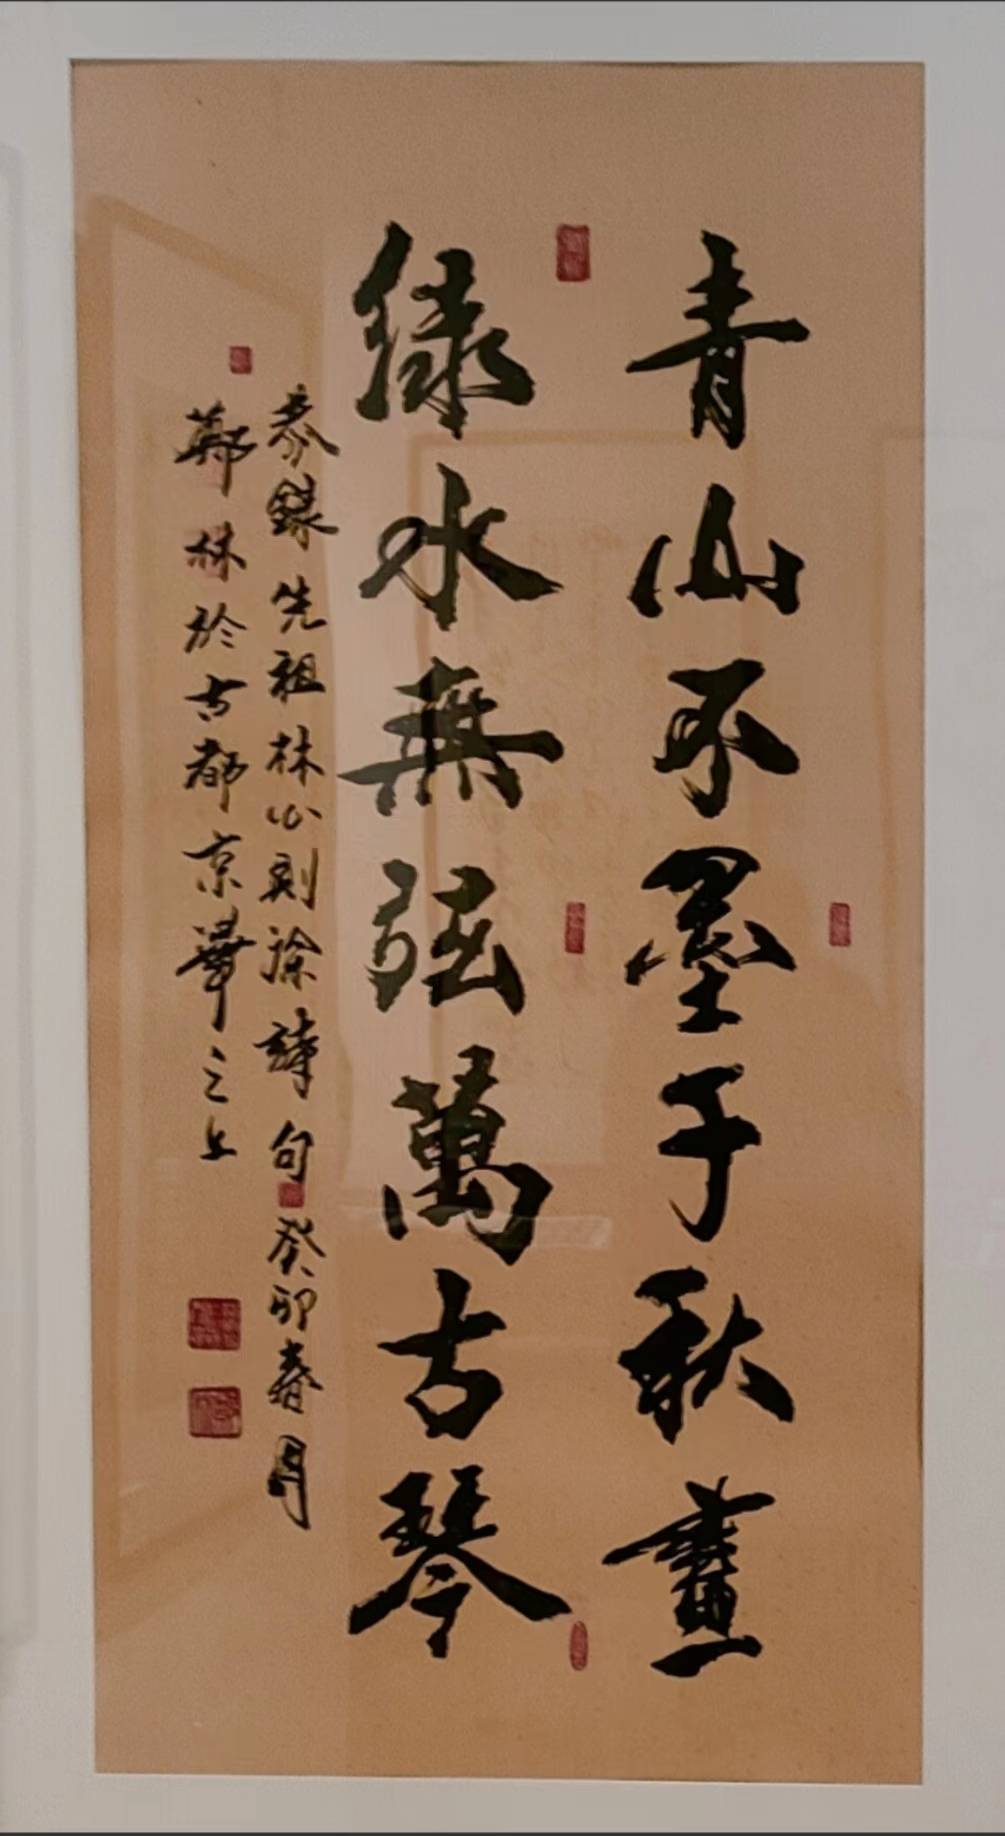 青山不墨千秋畫
綠水無弦萬古琴
恭錄先祖林公則徐詩句 癸卯春月
鄭林於古都京華之上